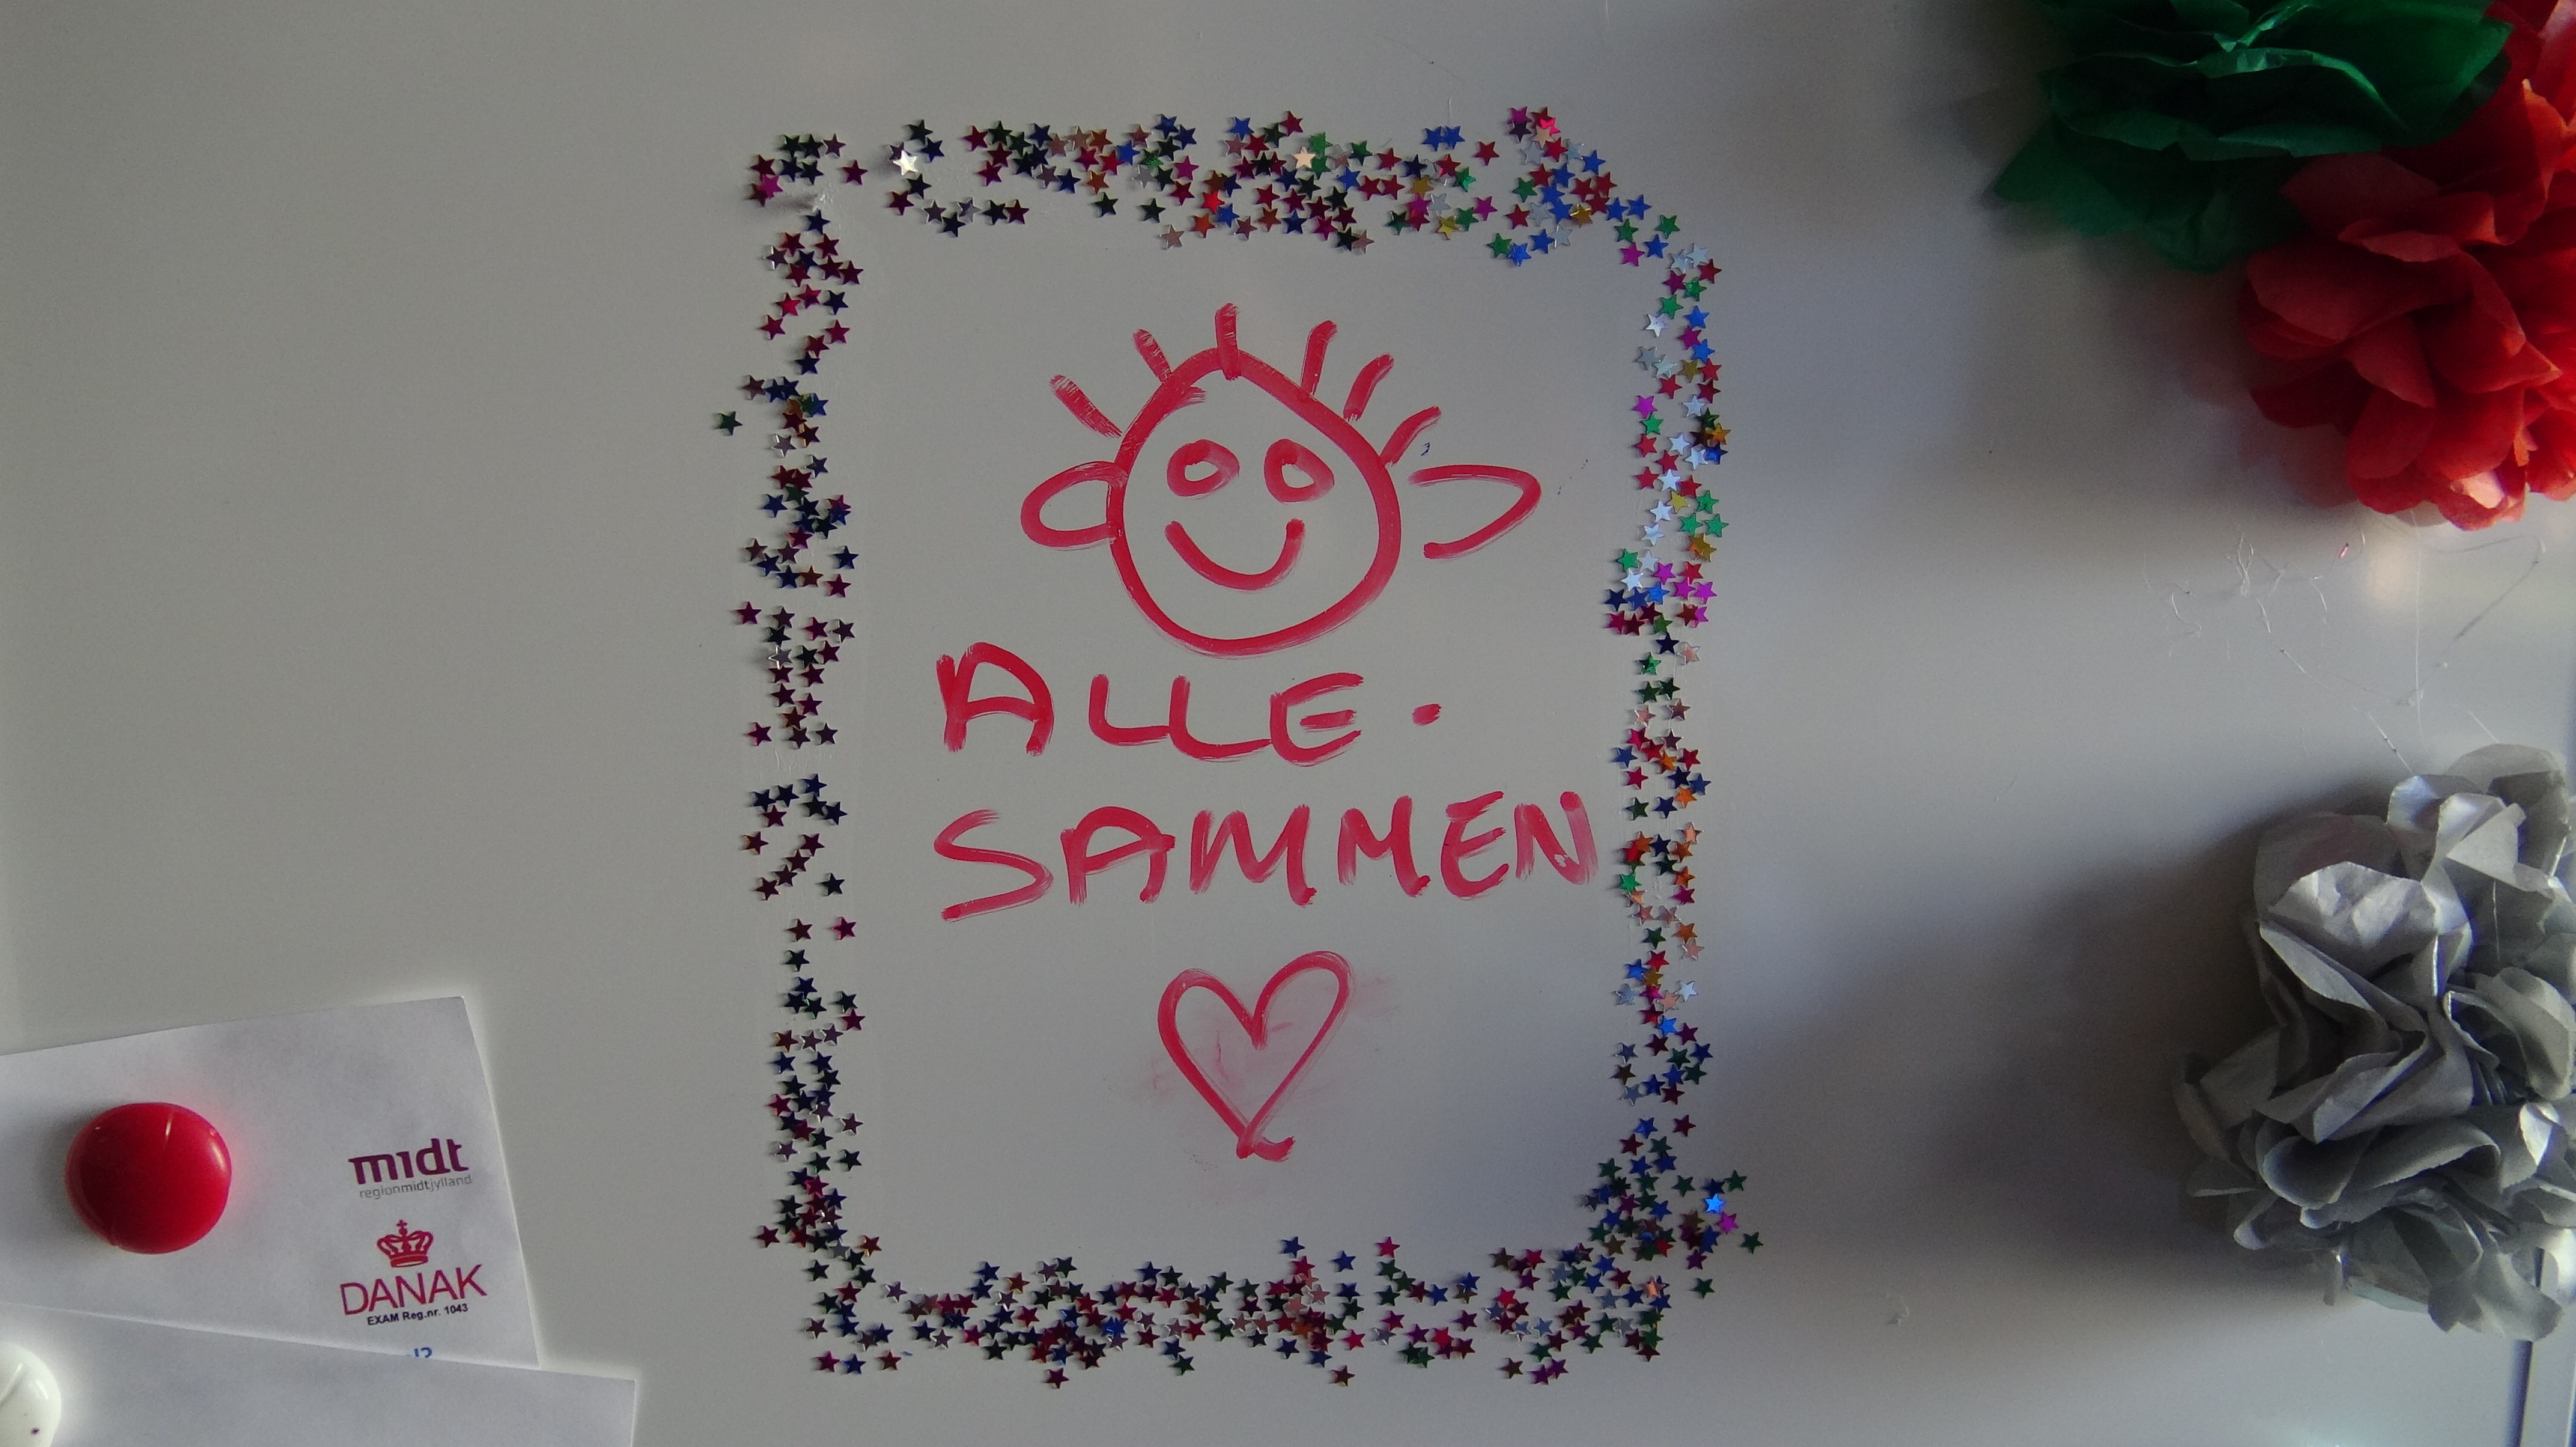 ALLE.
SAMMEN
midt
regionmidtjylland
DANAK
EXAM Reg.nr. 1043